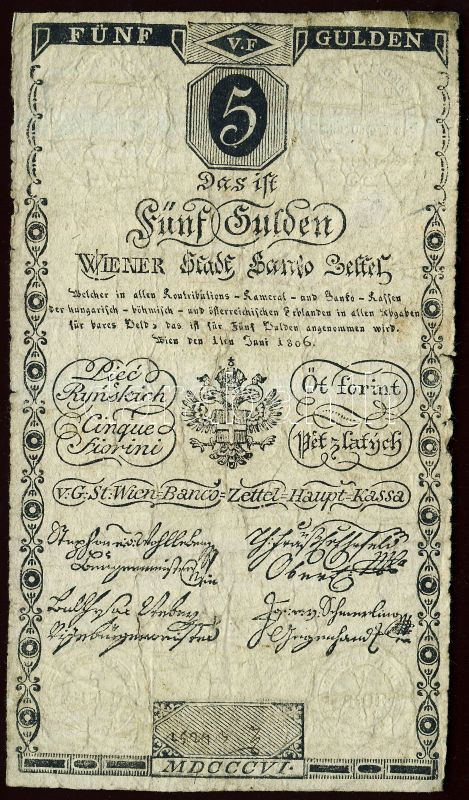 FÜNF V.F GULDEN
5
Das ist
Fünf Gulden
WIENER Stadt Banko Zettel
Welcher in allen Kontributions-Kameral-und Banko-Kassen
der hungarisch-böhmisch-und österreichischen Erblanden in allen Abgaben
für bares Geld, das ist für Fünf Gulden angenommen wird.
Wien den 1ten Juni 1806.
Pięć
Ryńskich
Öt forint
Cinque
Fiorini
Pět zlatých
v. G: St: Wien-Banco-Zettel-Haupt-Kassa
Stephan v: Wohlleben
Burgermeister
Vizebürgermeister
MDCCCVI.